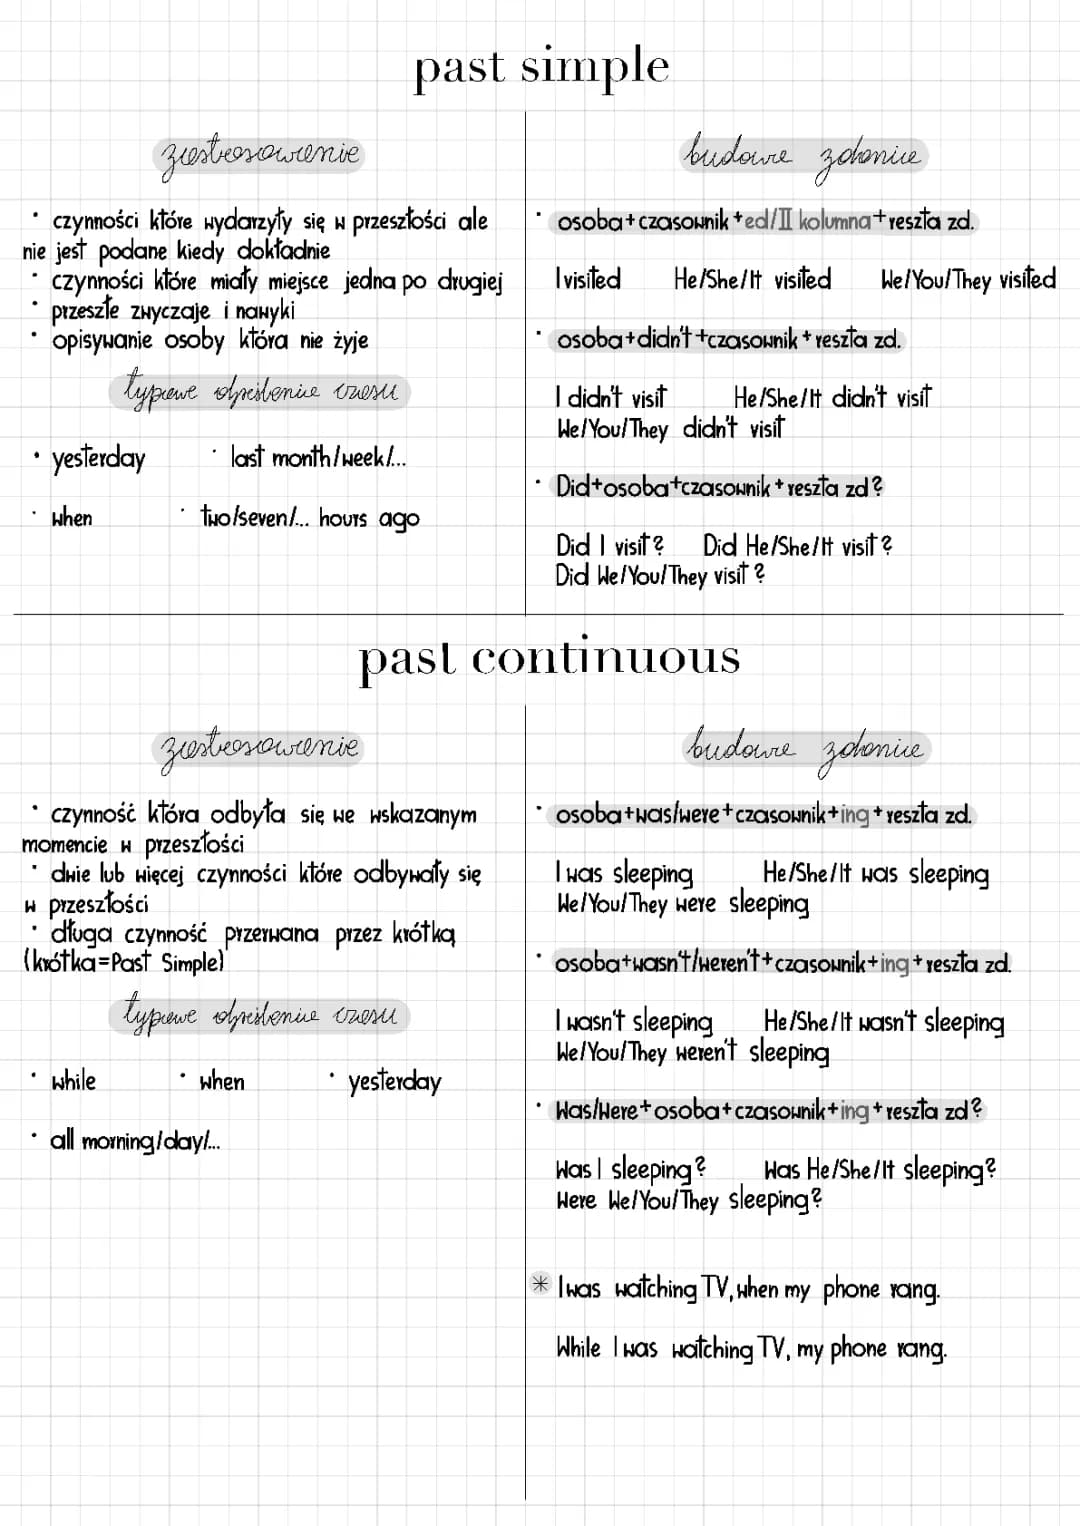 past simple
zastosowanie
· czynności które wydarzyły się w przeszłości ale
nie jest podane kiedy dokładnie
· czynności które miały miejsce jedna po drugiej
· przeszłe zwyczaje i nawyki
· opisywanie osoby która nie żyje
typowe określenia czasu
· yesterday · last month/week/...
· when · two/seven/... hours ago
budowa zdania
· osoba+czasownik+ed/II kolumna+reszta zd.
I visited He/She/It visited We/You/They visited
· osoba+didn't+czasownik+reszta zd.
I didn't visit He/She/It didn't visit
We/You/They didn't visit
· Did+osoba+czasownik+reszta zd?
Did I visit? Did He/She/It visit?
Did We/You/They visit?
past continuous
zastosowanie
· czynność która odbyła się we wskazanym
momencie w przeszłości
· dwie lub więcej czynności które odbywały się
w przeszłości
· długa czynność przerwana przez krótką
(krótka=Past Simple)
typowe określenia czasu
· while · when · yesterday
· all morning/day/...
budowa zdania
· osoba+was/were+czasownik+ing+reszta zd.
I was sleeping He/She/It was sleeping
We/You/They were sleeping
· osoba+wasn't/weren't+czasownik+ing+reszta zd.
I wasn't sleeping He/She/It wasn't sleeping
We/You/They weren't sleeping
· Was/Were+osoba+czasownik+ing+reszta zd?
Was I sleeping? Was He/She/It sleeping?
Were We/You/They sleeping?
* I was watching TV, when my phone rang.
While I was watching TV, my phone rang.